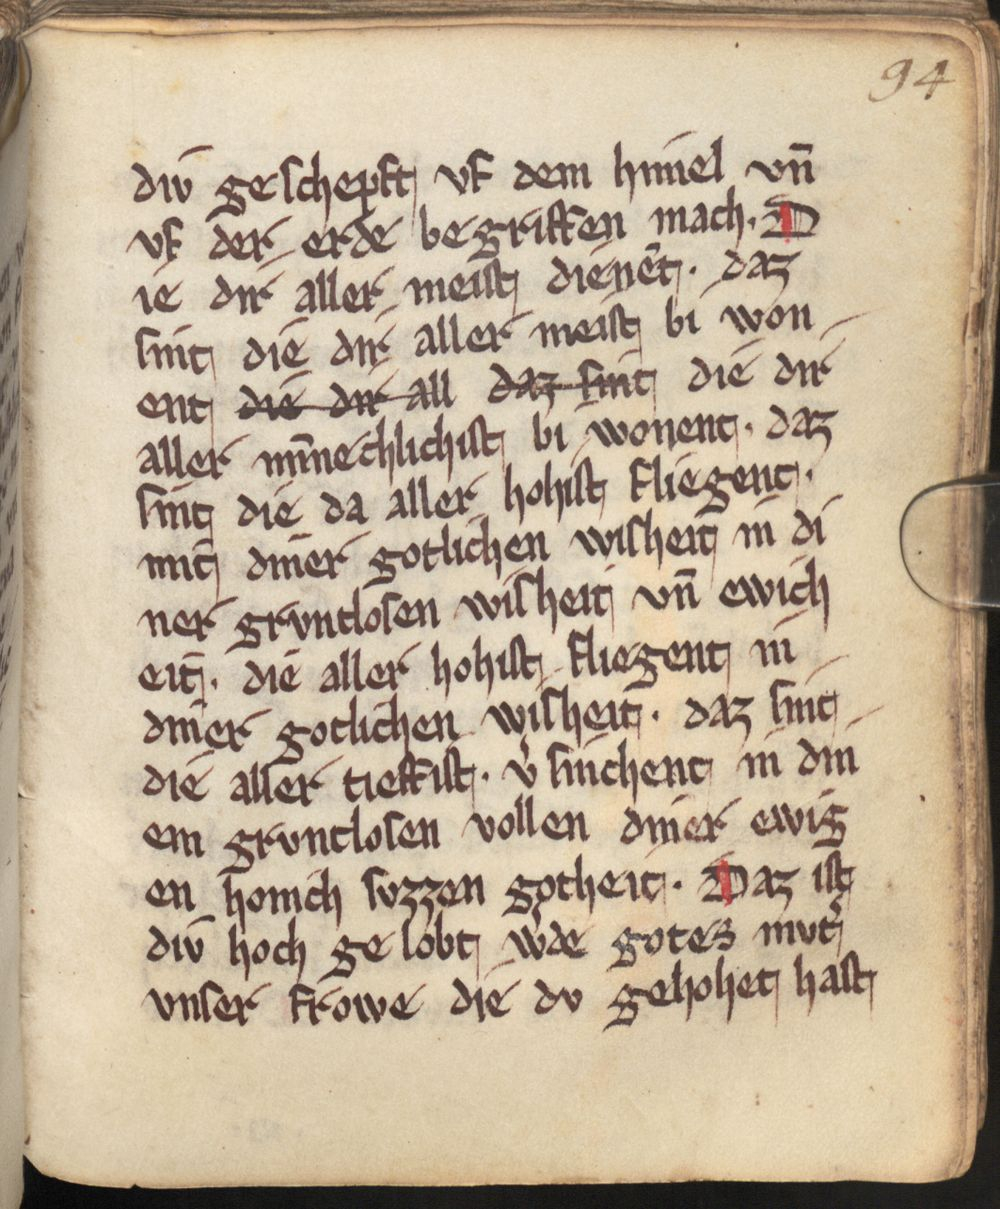 94
div geschepft vf dem himel vn̄
vf der erde begriffen mach. D
ie dir aller meist dienēt. daz
sint die dir aller meist bi won
ent die dir all daz sint die dir
aller min̄echlichist bi wonent. daz
sint die da aller hohist fliegent.
mit diner gotlichen wisheit in di
ner grvntlosen wisheit vn̄ ewich
eit. die aller hohist fliegent in
diner gotlichen wisheit. daz sint
die aller tieffist. v̓sinchent in din
em grvntlosen vollen diner ewig
en honich svzzen gotheit. Daz ist
div hoch gelobt w̓de gotes mvt̓
vnser frowe die dv gehohet hast